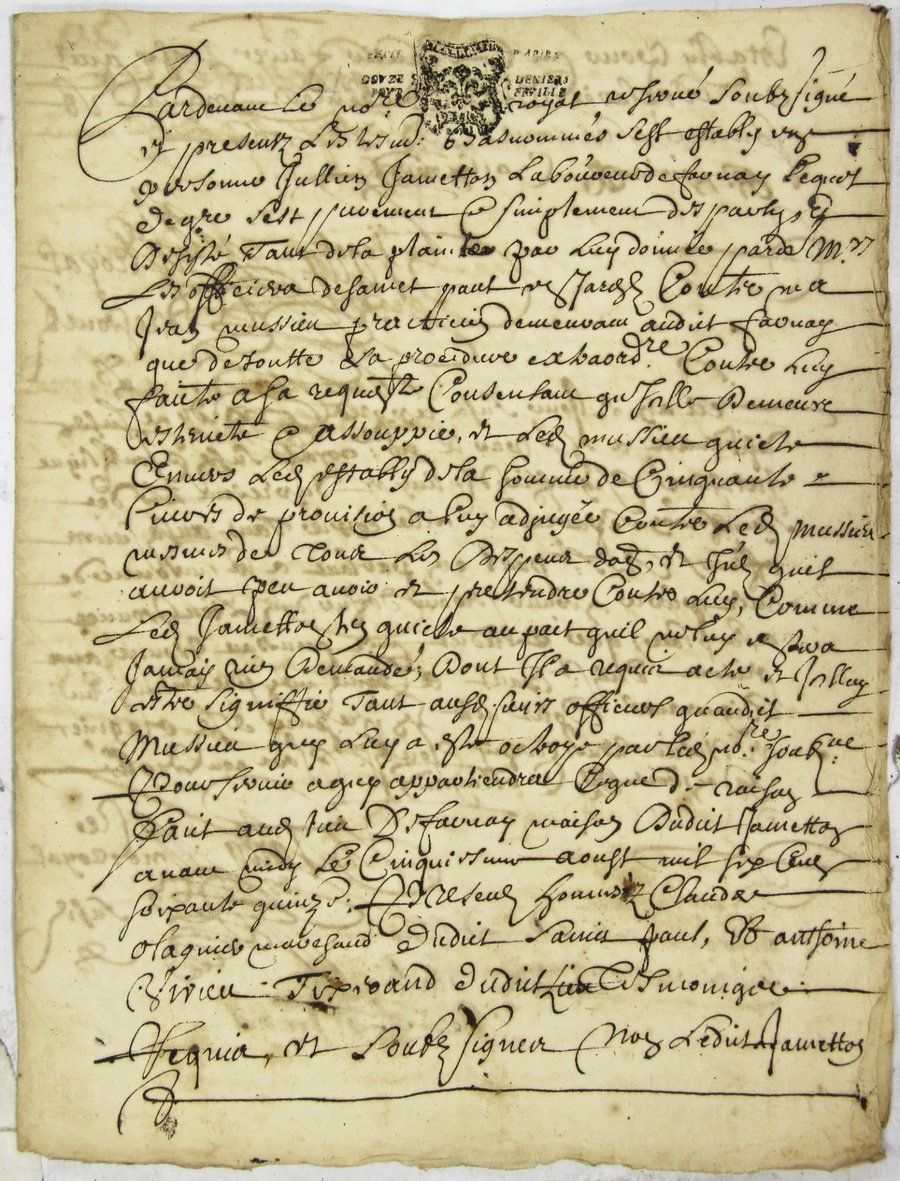 DOUZE DENIERS
FEUILLE
Pardevant le no.re royal resérvé Soubzsigné
Et presentz les tesm: basnommés s'est estably en
personne Jullien Jametton Laboureur de favnay Lequel
de gre s'est purement & simplement desparty, &
Desisté Tant de la plainte par Luy donnée parde M.rs
Les officiers de sainct paul en Jarestz Contre ma
Jean mussieu practicien demeurant audit favnay
que de toutte La procedure extraord.re Contre Luy
faicte a sa requeste Consentant qu'Jcelle Demeure
esteinte & assouppie, et Led mussieu quicte
Envers Led estably de la somme de Cinquante
Livres de provision a luy adjugée Contre Led mussieu
mesmes de Tous Les Despens dod, et Jnt quil
auroit peu avoir et pretendre Contre Luy, Comme
Led Jametton Len quicte au pact quil ne luy en sera
Jamais rien Demandé; Dont Jl a requis acte et Jcelluy
estre signiffié Tant ausd sieurs officiers quaudit
Mussieu que Luy a esté octroyé par led no.re soubz.né
Pour servir a quy appartiendra Ce que de raison
Faict aud lieu De favnay maison Dudict Jametton
avant midy Le Cinquiesme aoust mil six Cens
soixante quinze: Presens honnestz Claude
olagnier marchand dudict Sainct paul, Et anthoine
Vivien Tisserand dudict Lieu Tesmoings
Requis, et Soubzsignez Non Ledict Jametton